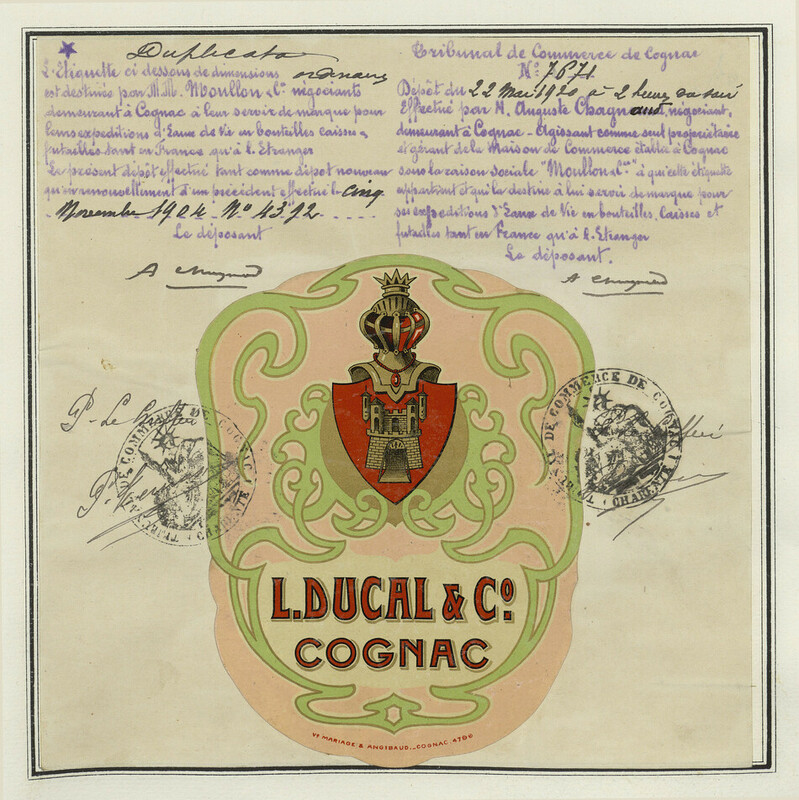 Duplicata
L'Etiquette ci dessous de dimensions ordinaires
est destinée par M.M. Moullon & Cie négociants
demeurant à Cognac à leur servir de marque pour
leurs expeditions d'Eaux de Vie en bouteilles caisses &
futailles tant en France qu'à l'Etranger
Le présent dépôt effectué tant comme dépôt nouveau
qu'en renouvellement d'un précédent effectué le cinq
Novembre 1904 - No 4372 - . . . .
Le déposant
Tribunal de Commerce de Cognac
No 7671
Dépôt du 22 Mai 1920 à 2 heures du soir
Effectué par M. Auguste Chagnaud, négociant,
demeurant à Cognac - Agissant comme seul propriétaire
et gérant de la Maison de Commerce établie à Cognac
sous la raison sociale "Moullon & Cie" à qui cette étiquette
appartient et qui la destine à lui servir de marque pour
ses expeditions d'Eaux de Vie en bouteilles, Caisses et
futailles tant en France qu'à l'Etranger
Le déposant.
DE COMMERCE DE COGNAC
CHARENTE
DE COMMERCE DE COGNAC
CHARENTE
L. DUCAL & Co.
COGNAC
Vve MARIAGE & ANGIBAUD._COGNAC.4796